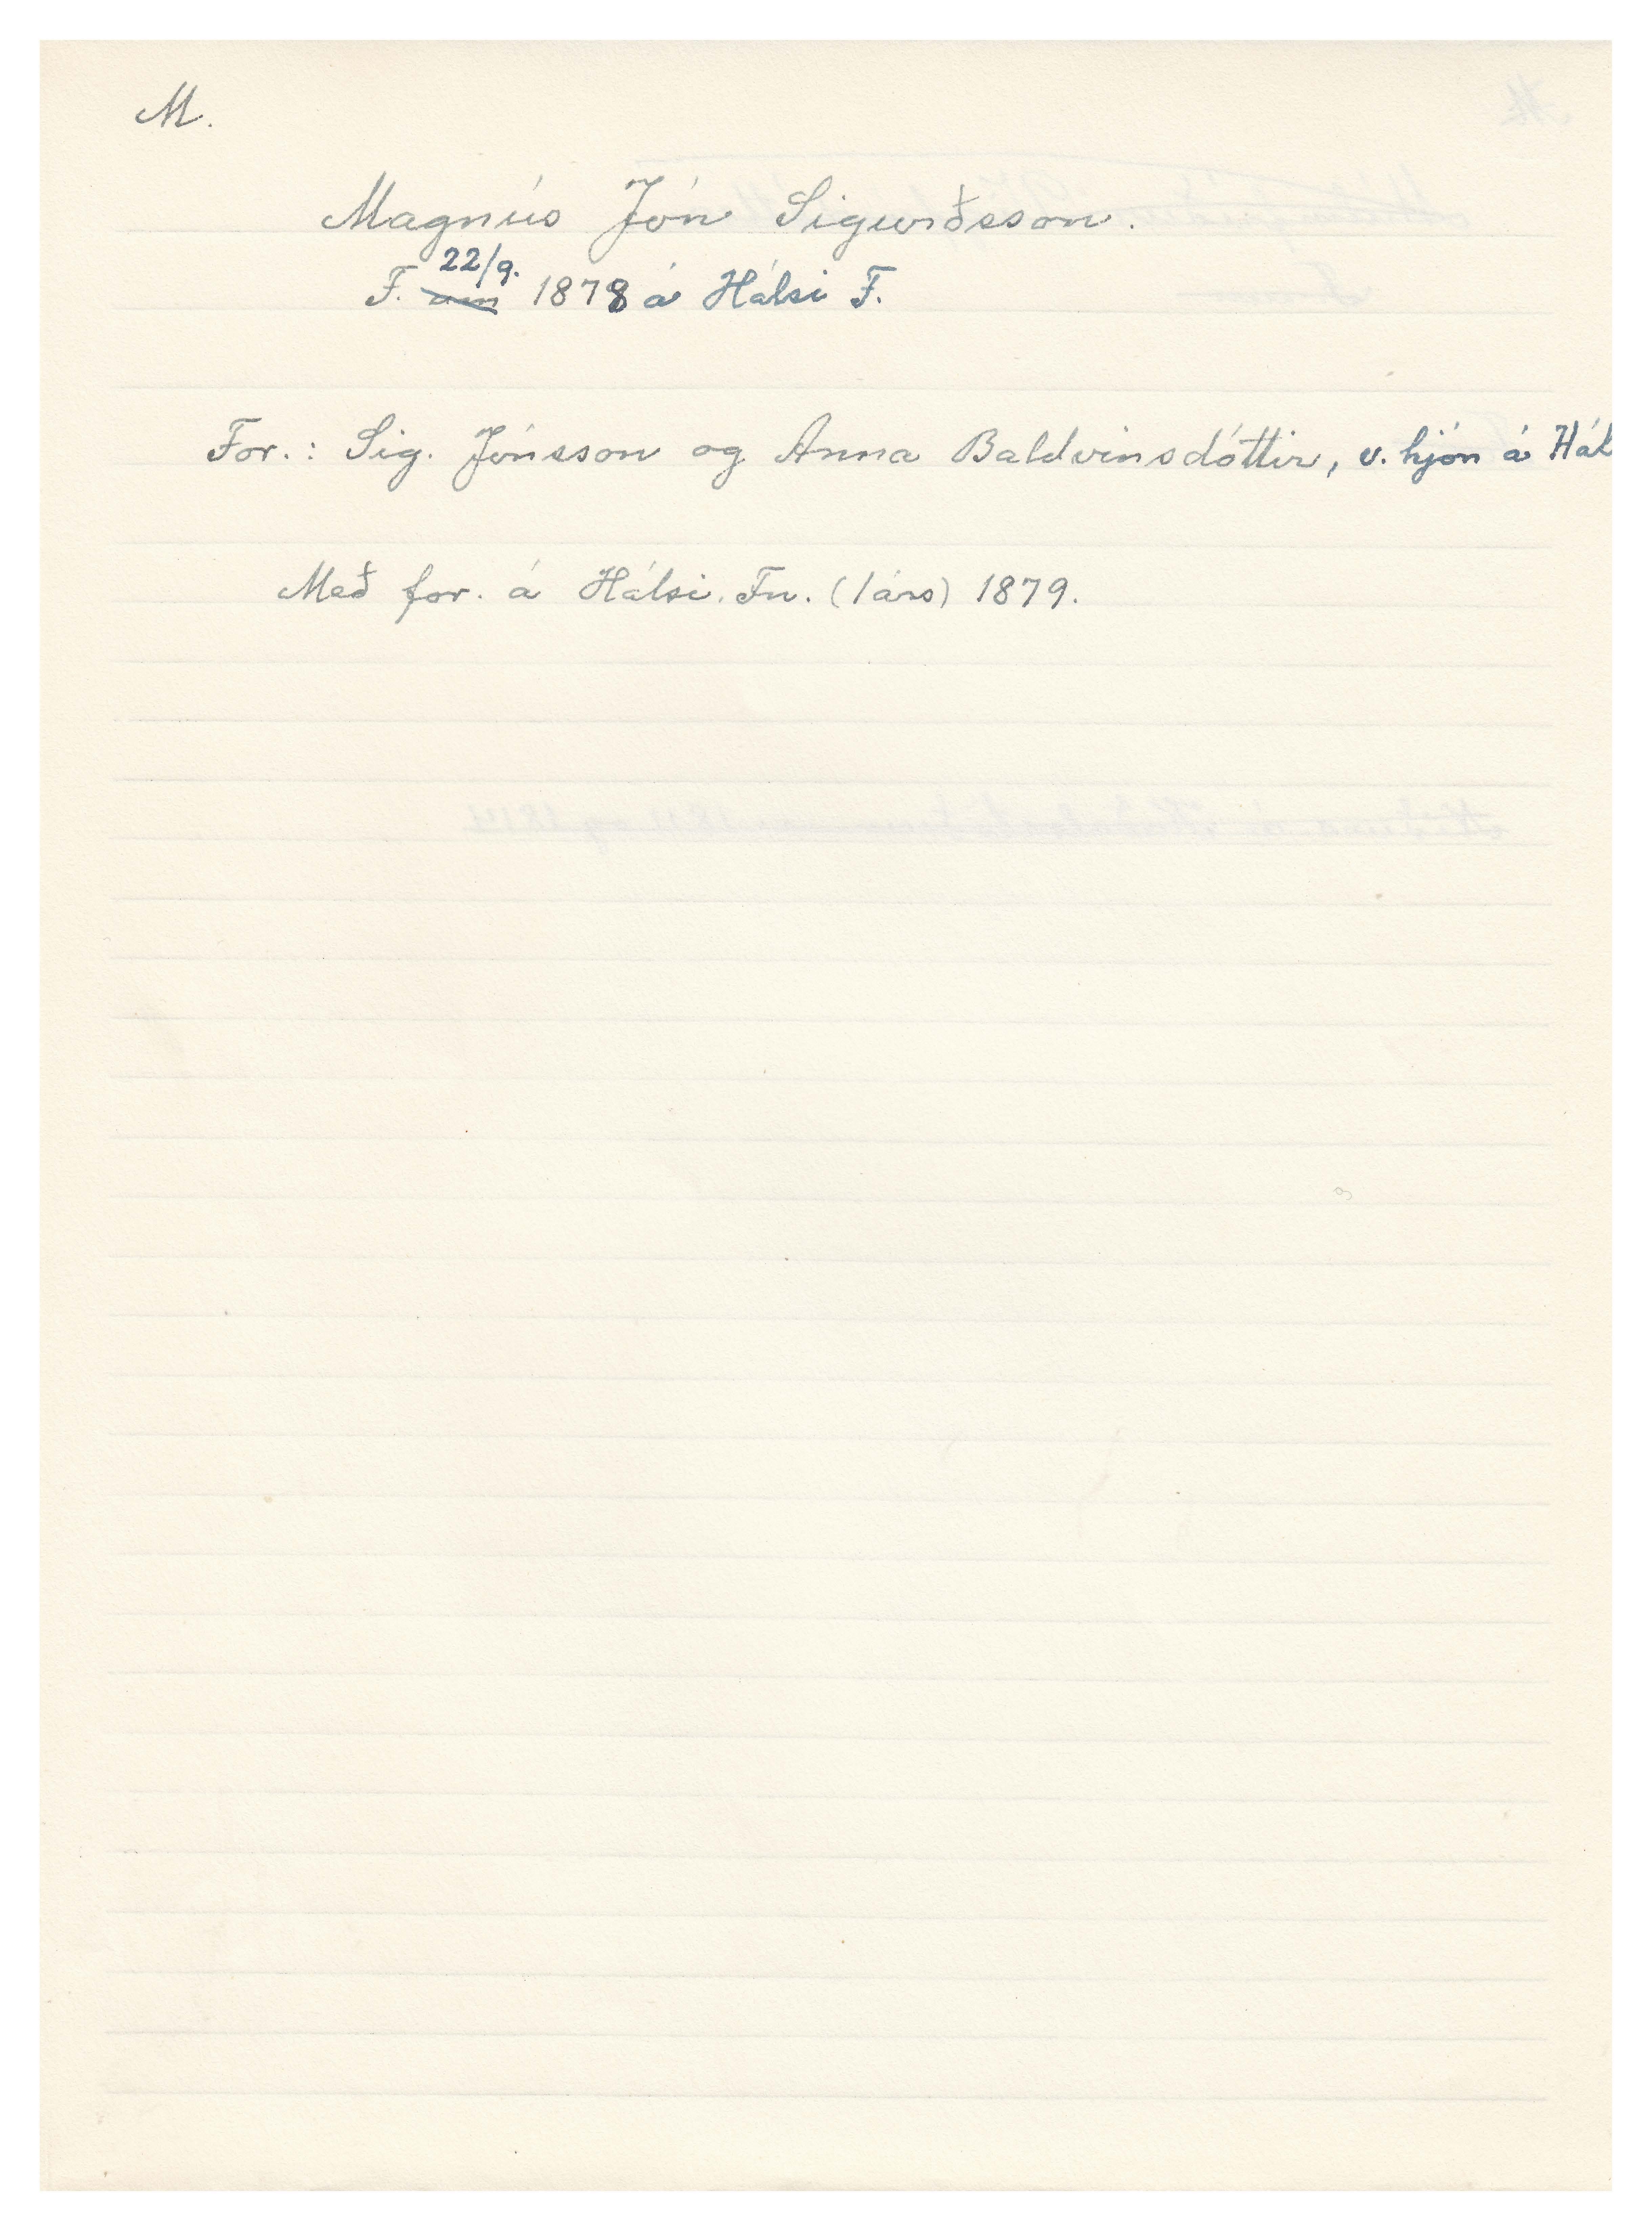 M.
Magnús Jón Sigurðsson.
22/9.
F. um 1878 á Hálsi F.
For.: Sig. Jónsson og Anna Baldvinsdóttir, v. hjón á Hál
Með for. á Hálsi. Fn. (1 árs) 1879.